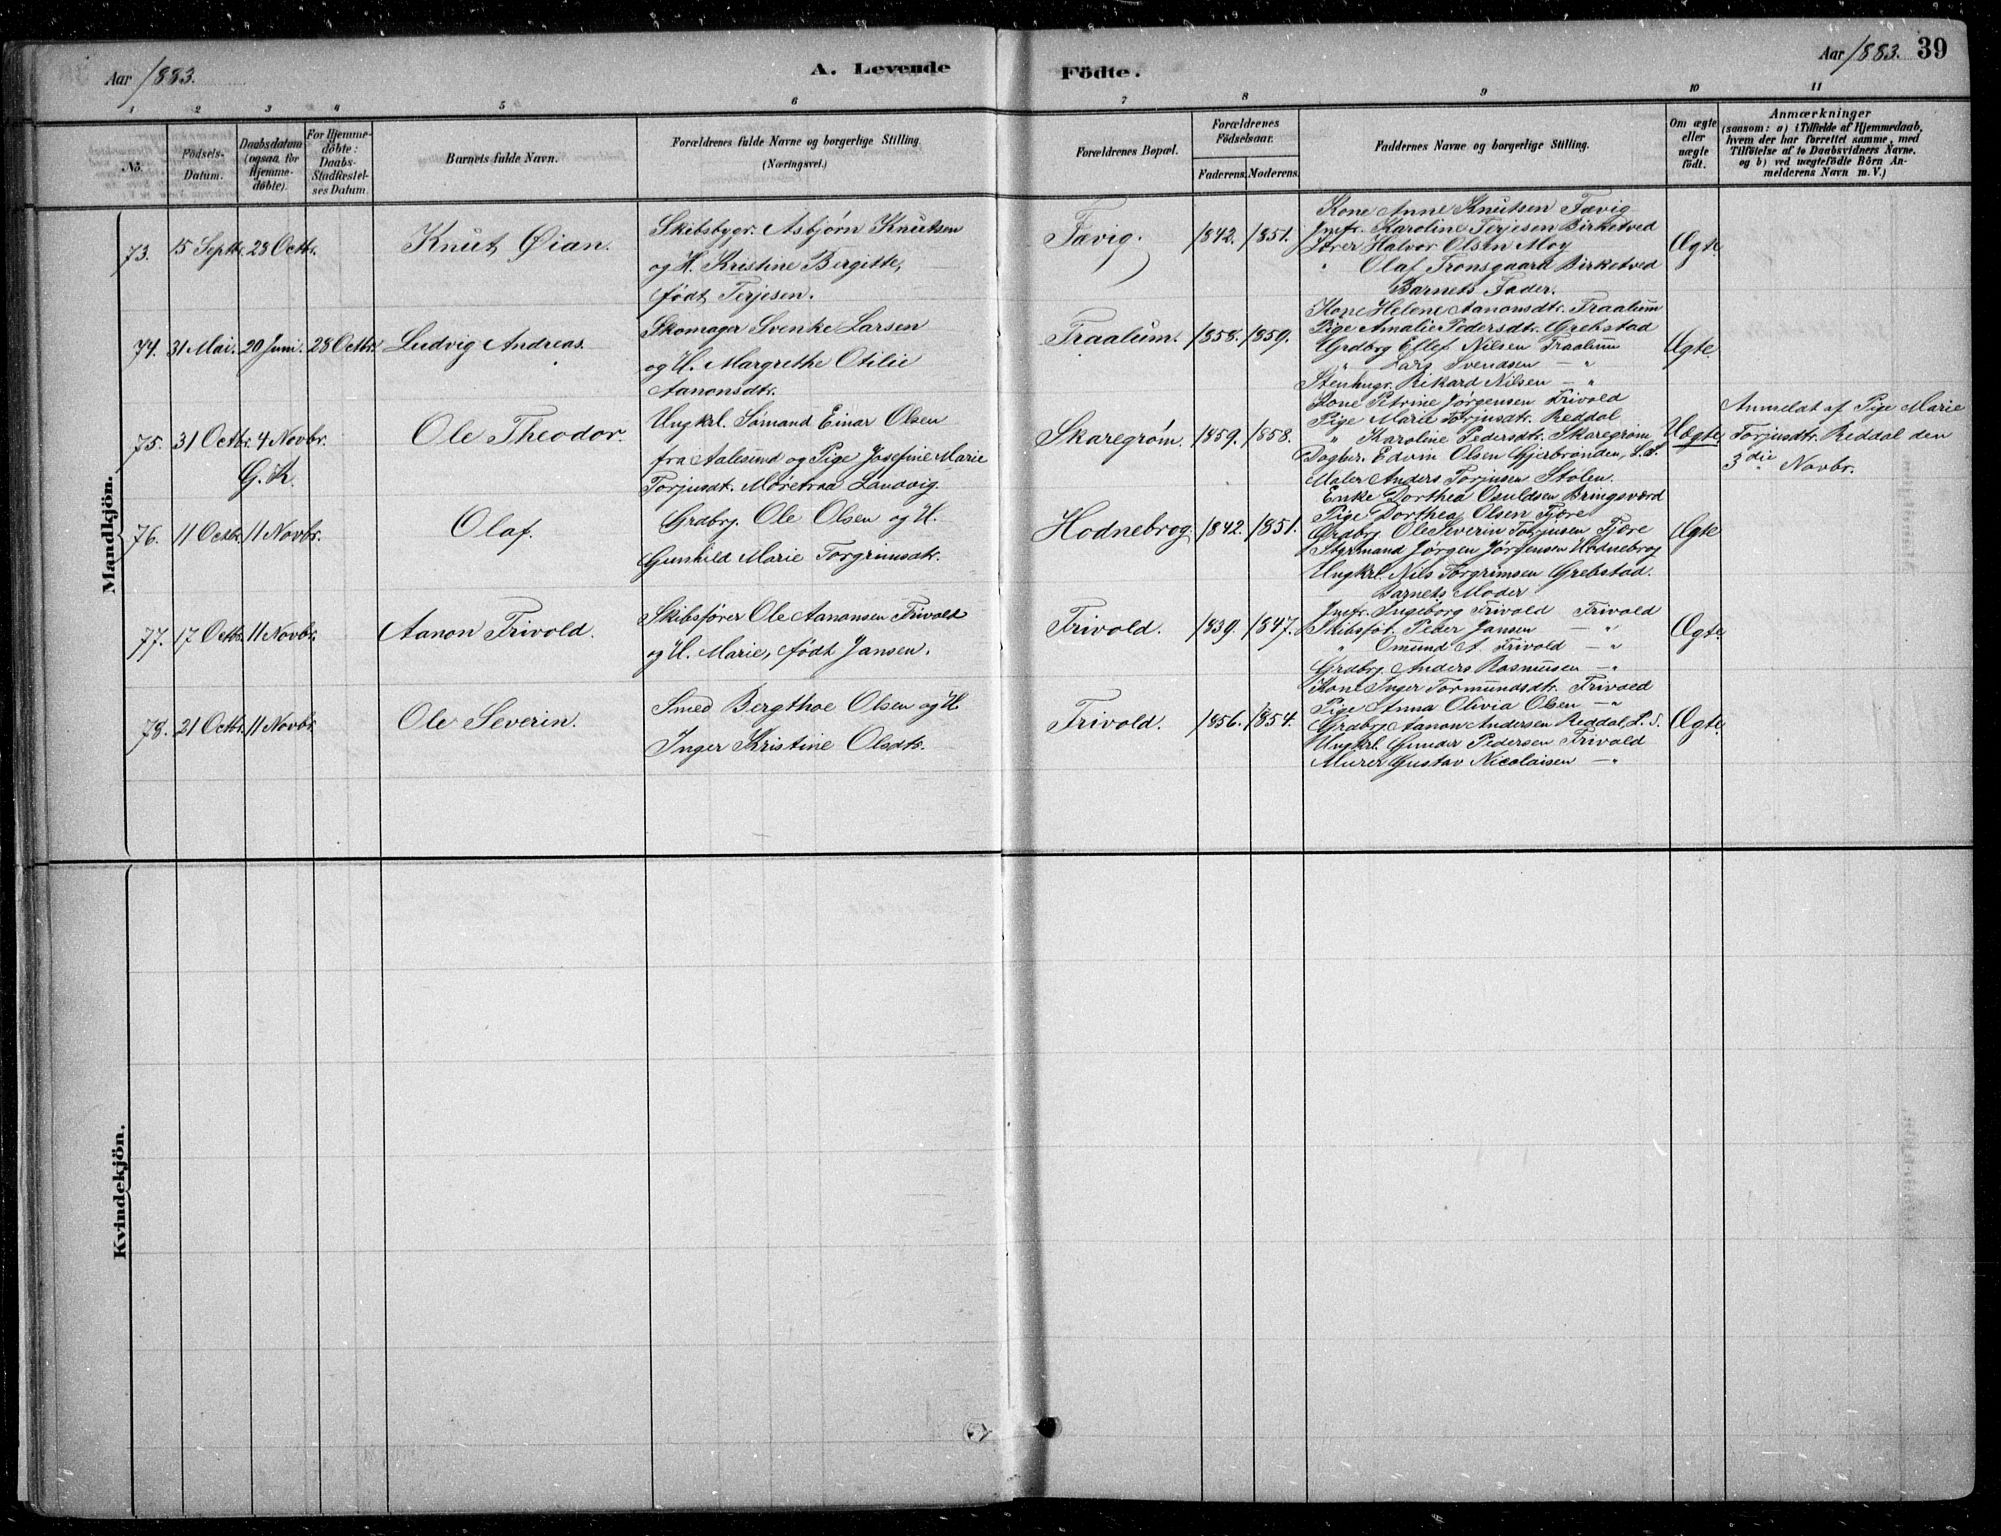 Aar 1883. A. Levende Födte. Aar 1883. 39
1 2 3 4 5 6 7 8 9 10 11
No. Födsels-Datum. Daabsdatum (ogsaa for Hjemmedöbte). For Hjemmedöbte: Daabs-Stadfæstelses Datum. Barnets fulde Navn. Forældrenes fulde Navne og borgerlige Stilling (Næringsvei.) Forældrenes Bopæl. Forældrenes Födselsaar. Faderens. Moderens. Faddernes Navne og borgerlige Stilling. Om ægte eller uægte födt. Anmærkninger (saasom: a) i Tilfælde af Hjemmedaab, hvem der har forrettet samme, med Tilföielse af to Daabsvidners Navne. og b) ved uægtefödte Börn Anmelderens Navn m. V.)
Mandkjön.
73. 15 Septbr. 28 Octbr. Knut Øian.
Skibsbygr. Asbjørn Knutsen
og H. Kristine Bergitte,
født Terjesen.
Fævig. 1842. 1851.
Kone Anne Knutsen Fævig
Jmfr. Karoline Terjesen Birketved
Fører Halvor Olsen Moy
" Olaf Fronsgaard Birketved
Barnets Fader.
Ægte
74. 31 Mai. 20 Juni. 28 Octbr. Ludvig Andreas.
Skomager Svenke Larsen
og H. Margrethe Otilie
Aanonsdtr.
Traalum. 1858. 1859.
Kone Helene Aanonsdtr. Traalum
Pige Amalie Pedersdtr. Grebstad
Grdbrg Ellef Nilsen Traalum
" Lars Svendsen — "
Stenhugr. Rikard Nilsen — "
Ægte
75. 31 Octbr. 4 Novbr. G. K. Ole Theodor.
Ungkrl. Sømand Einar Olsen
fra Aalesund og Pige Josefine Marie
Torjusdt. Møretraa Landvig.
Skaregrøm. 1859. 1858.
Kone Petrine Jørgensen Frivold
Pige Marie Torjusdtr. Reddal
" Karoline Pedersdtr. Skaregrøm
Dagbr. Edvin Olsen Gjerbranden, L. S.
Maler Anders Torjusen Stølen.
Uægte
Anmeldt af Pige Marie
Torjusdtr. Reddal den
3die Novbr.
76. 11 Octbr. 11 Novbr. Olaf.
Grdbrg. Ole Olsen og H.
Gunhild Marie Torgrimsdtr.
Hodnebrog 1842. 1851.
Enke Dorthea Osuldsen Bringsværd
Pige Dorthea Olsen Fjøre
Grdbrg Ole Severin Torjusen Fjøre
Styrmand Jørgen Jørgensen Hodnebrog
Ungkrl. Nils Torgrimsen Grebstad.
Ægte
77. 17 Octbr. 11 Novbr. Aanon Frivold.
Skibsfører Ole Aanonsen Frivold
og H. Marie, født Jansen.
Frivold. 1839. 1847.
Barnets Moder
Jmfr. Ingeborg Frivold Frivold
Skibsfør. Peder Jansen — "
" Omund A. Frivold — "
Grdbrg Anders Rasmusen — "
Ægte
78. 21 Octbr. 11 Novbr. Ole Severin.
Smed Bergthoe Olsen og H.
Inger Kristine Olsdtr.
Frivold. 1856. 1854.
Kone Inger Tormundsdtr. Frivold
Pige Anna Olivia Olsen — "
Grdbrg Aanon Andersen Reddal, L. S.
Ungkrl. Gunder Pedersen Frivold
Murer Gustav Nicolaisen — "
Ægte
Kvindekjön.